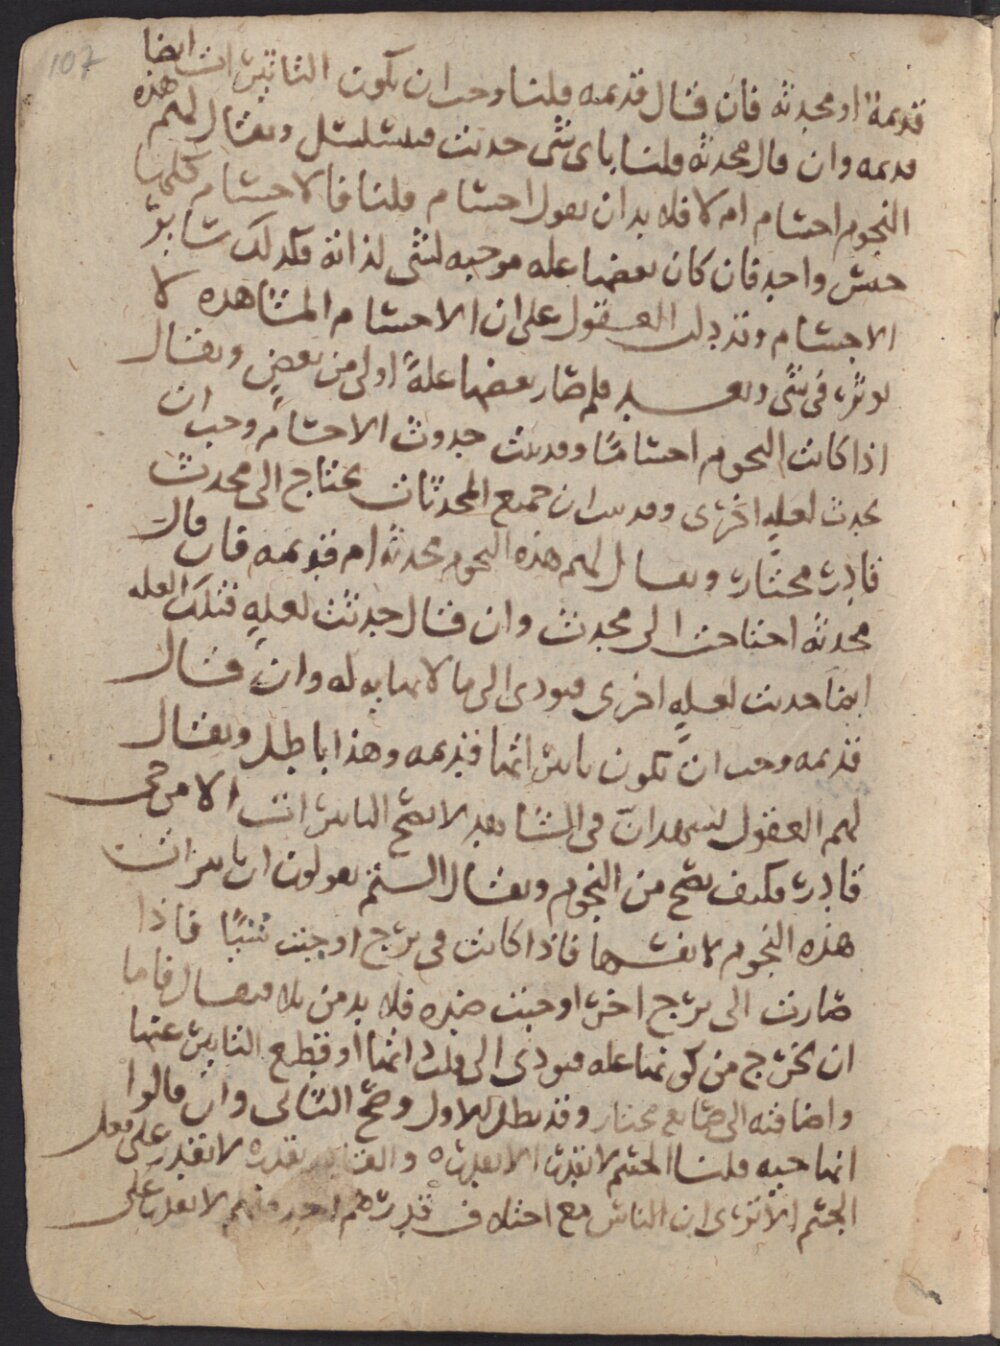 107
قديمة او محدثه فان قال قديمه قلنا وجب ان يكون التاثيرات ايضا
قديمه وان قال محدثه قلنا باى شى حدثت فيتسلسل ويقال لهم هذه
النجوم اجسام ام لا فلا بد ان يقول اجسام قلنا فالاجسام كلها
جنس واحد فان كان بعضها عله موجبه لشى لذاته فكذلك سائر
الاجسام وقد دلت العقول على ان الاجسام المشاهده لا
توثر فى شى وبعد فلم صار بعضها علةً اولى من بعض ويقال
اذا كانت النجوم اجسامًا وقد ثبت حدوث الاجسام وجب ان
يحدث لعلهٍ اخرى وقد بينا ان جميع المحدثات يحتاج الى محدث
قادر مختار ويقال لهم هذه النجوم محدثه ام قديمه فان قال
محدثه احتاجت الى محدث وان قال حدثت لعلهٍ فتلك العله
ايضا حدثت لعلهٍ اخرى فيودى الى ما لا نهايه له وان قال
قديمه وجب ان تكون تاثيراتها قديمه وهذا باطل ويقال
لهم العقول تشهد ان فى الشاهد لا يصح التاثيرات الا من حى
قادر فكيف يصح من النجوم ويقال الستم تقولون ان تاثيرات
هذه النجوم لانفسها فاذا كانت فى برج اوجبت شيًا فاذا
صارت الى برج اخر اوجبت ضده فلا بد من بلا فيقال فاما
ان يخرج من كونها عله فيودى الى قلب ذاتها او قطع التاثير عنها
واضافته الى صانع مختار وقد بطل الاول وصح الثانى وان قالوا
انها حيه قلنا الجسم لا يقدر الا بقدره والقادر بقدره لا يقدر على فعل
الجسم الا ترى ان الناس مع اختلاف قدرهم لا يقدر على